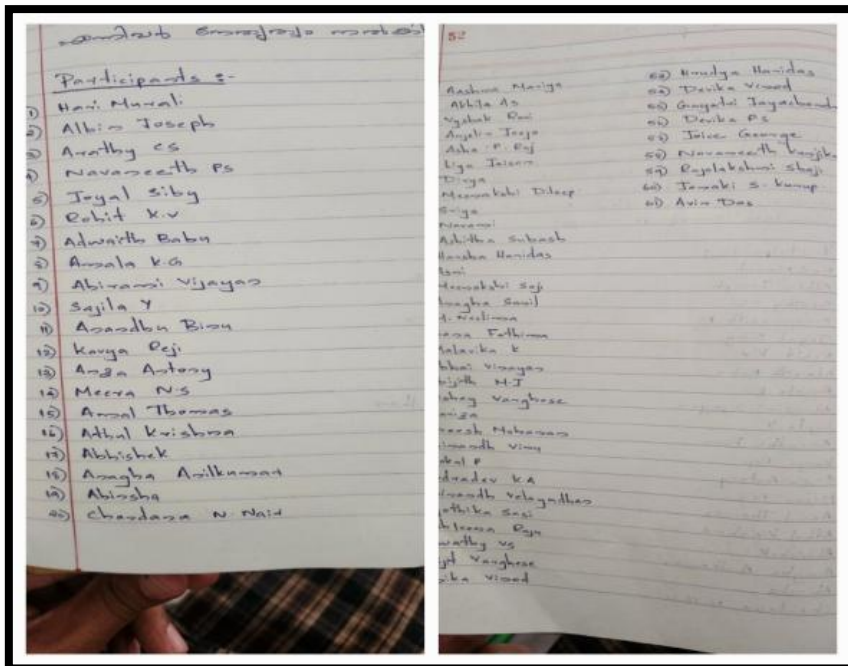 Participants :-
1) Hari Murali
2) Albin Joseph
3) Arathy CS
4) Navaneeth PS
5) Joyal Siby
6) Rohit K.V
7) Adwaith Babu
8) Amala K.G
9) Abirami Vijayan
10) Sajila Y
11) Anandhu Binu
12) Kavya Reji
13) Anza Antony
14) Meera N.S
15) Amal Thomas
16) Athul Krishna
17) Abhishek
18) Anagha Anilkumar
19) Abinsha
20) Chandana N. Nair
52
Aashna Mariya
Abhila As
Vyshak Ravi
Anjalin Joojo
Asha .P. Raj
Liya Jaison
Divya
Meenakshi Dileep
Sriya
Navami
Ashitha Subash
Harsha Haridas
Meenakshi Saji
Fathima
Malavika K
Vinayan
M.J
Varghese
Mohanan
Vinu
P
KA
Velayudhan
Sasi
Raju
VS
Varghese
Vinod
Hrudya Haridas
Devika Vinod
Gayatri
Devika PS
Joice George
Navaneeth
59) Rajalakshmi Shaji
60) Janaki S. Kurup
61) Avin Das